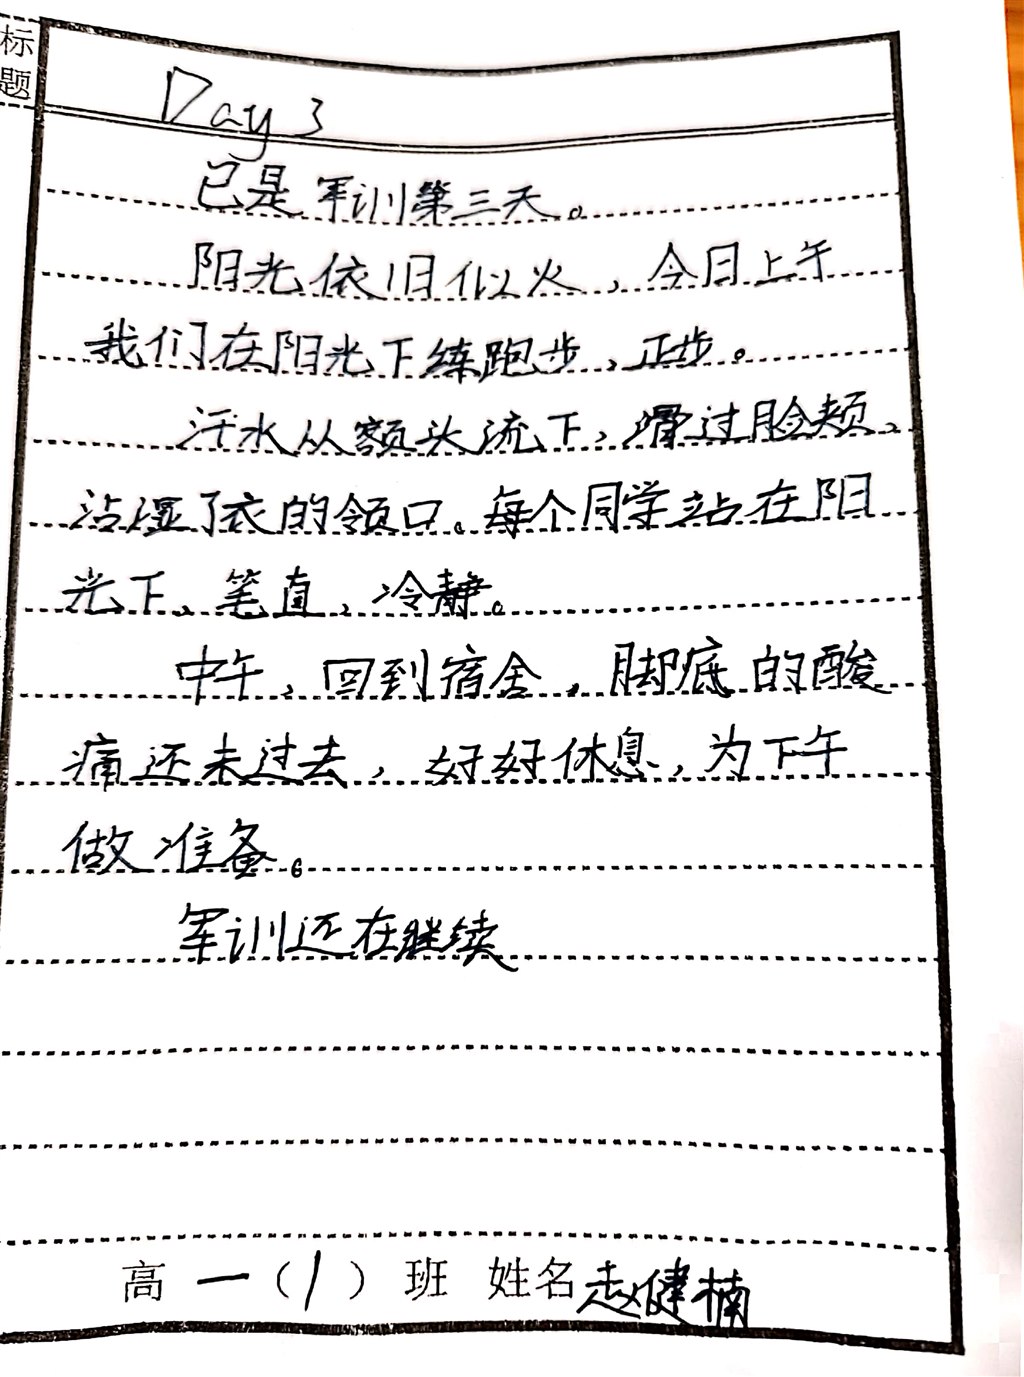 标题
Day 3
已是军训第三天。
阳光依旧似火，今日上午
我们在阳光下练跑步、正步。
汗水从额头流下，滑过脸颊、
沾湿了衣的领口。每个同学站在阳
光下、笔直、冷静。
中午，回到宿舍，脚底的酸
痛还未过去，好好休息，为下午
做准备。
军训还在继续
高一（1）班 姓名赵健楠